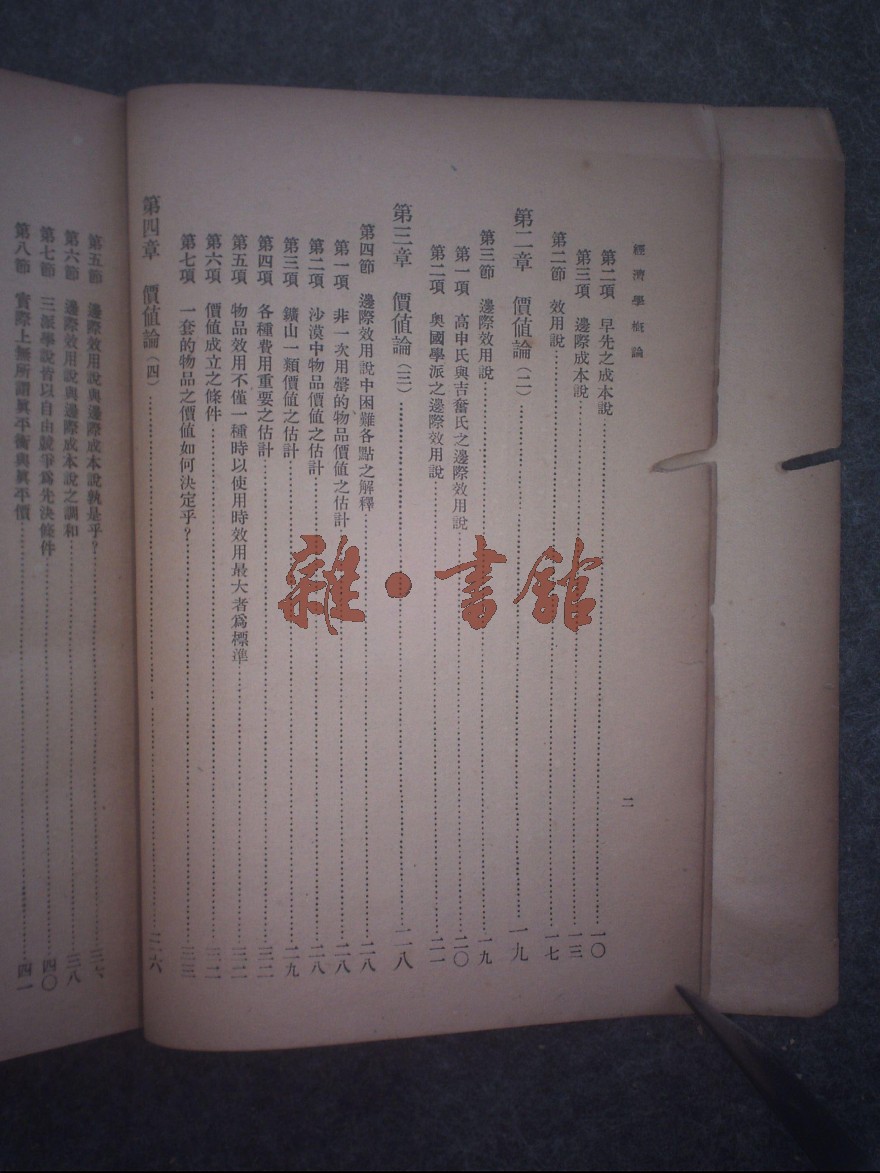 經濟學概論
二
第二項 早先之成本說 一〇
第三項 邊際成本說 一三
第二節 效用說 一七
第二章 價值論(二) 一九
第三節 邊際效用說 一九
第一項 高申氏與吉奮氏之邊際效用說 二〇
第二項 奧國學派之邊際效用說 二一
第三章 價值論(三) 二八
第四節 邊際效用說中困難各點之解釋 二八
第一項 非一次用罄的物品價值之估計 二八
第二項 沙漠中物品價值之估計 二八
第三項 鑛山一類價值之估計 二九
第四項 各種費用重要之估計
第五項 物品效用不僅一種時以使用時效用最大者爲標準
第六項 價值成立之條件
第七項 一套的物品之價值如何決定乎? 三三
第四章 價值論(四) 三六
第五節 邊際效用說與邊際成本說孰是乎?
第六節 邊際效用說與邊際成本說之調和 三八
第七節 三派學說皆以自由競爭爲先決條件 四〇
第八節 實際上無所謂眞平衡與眞平價 四一
雜·書館